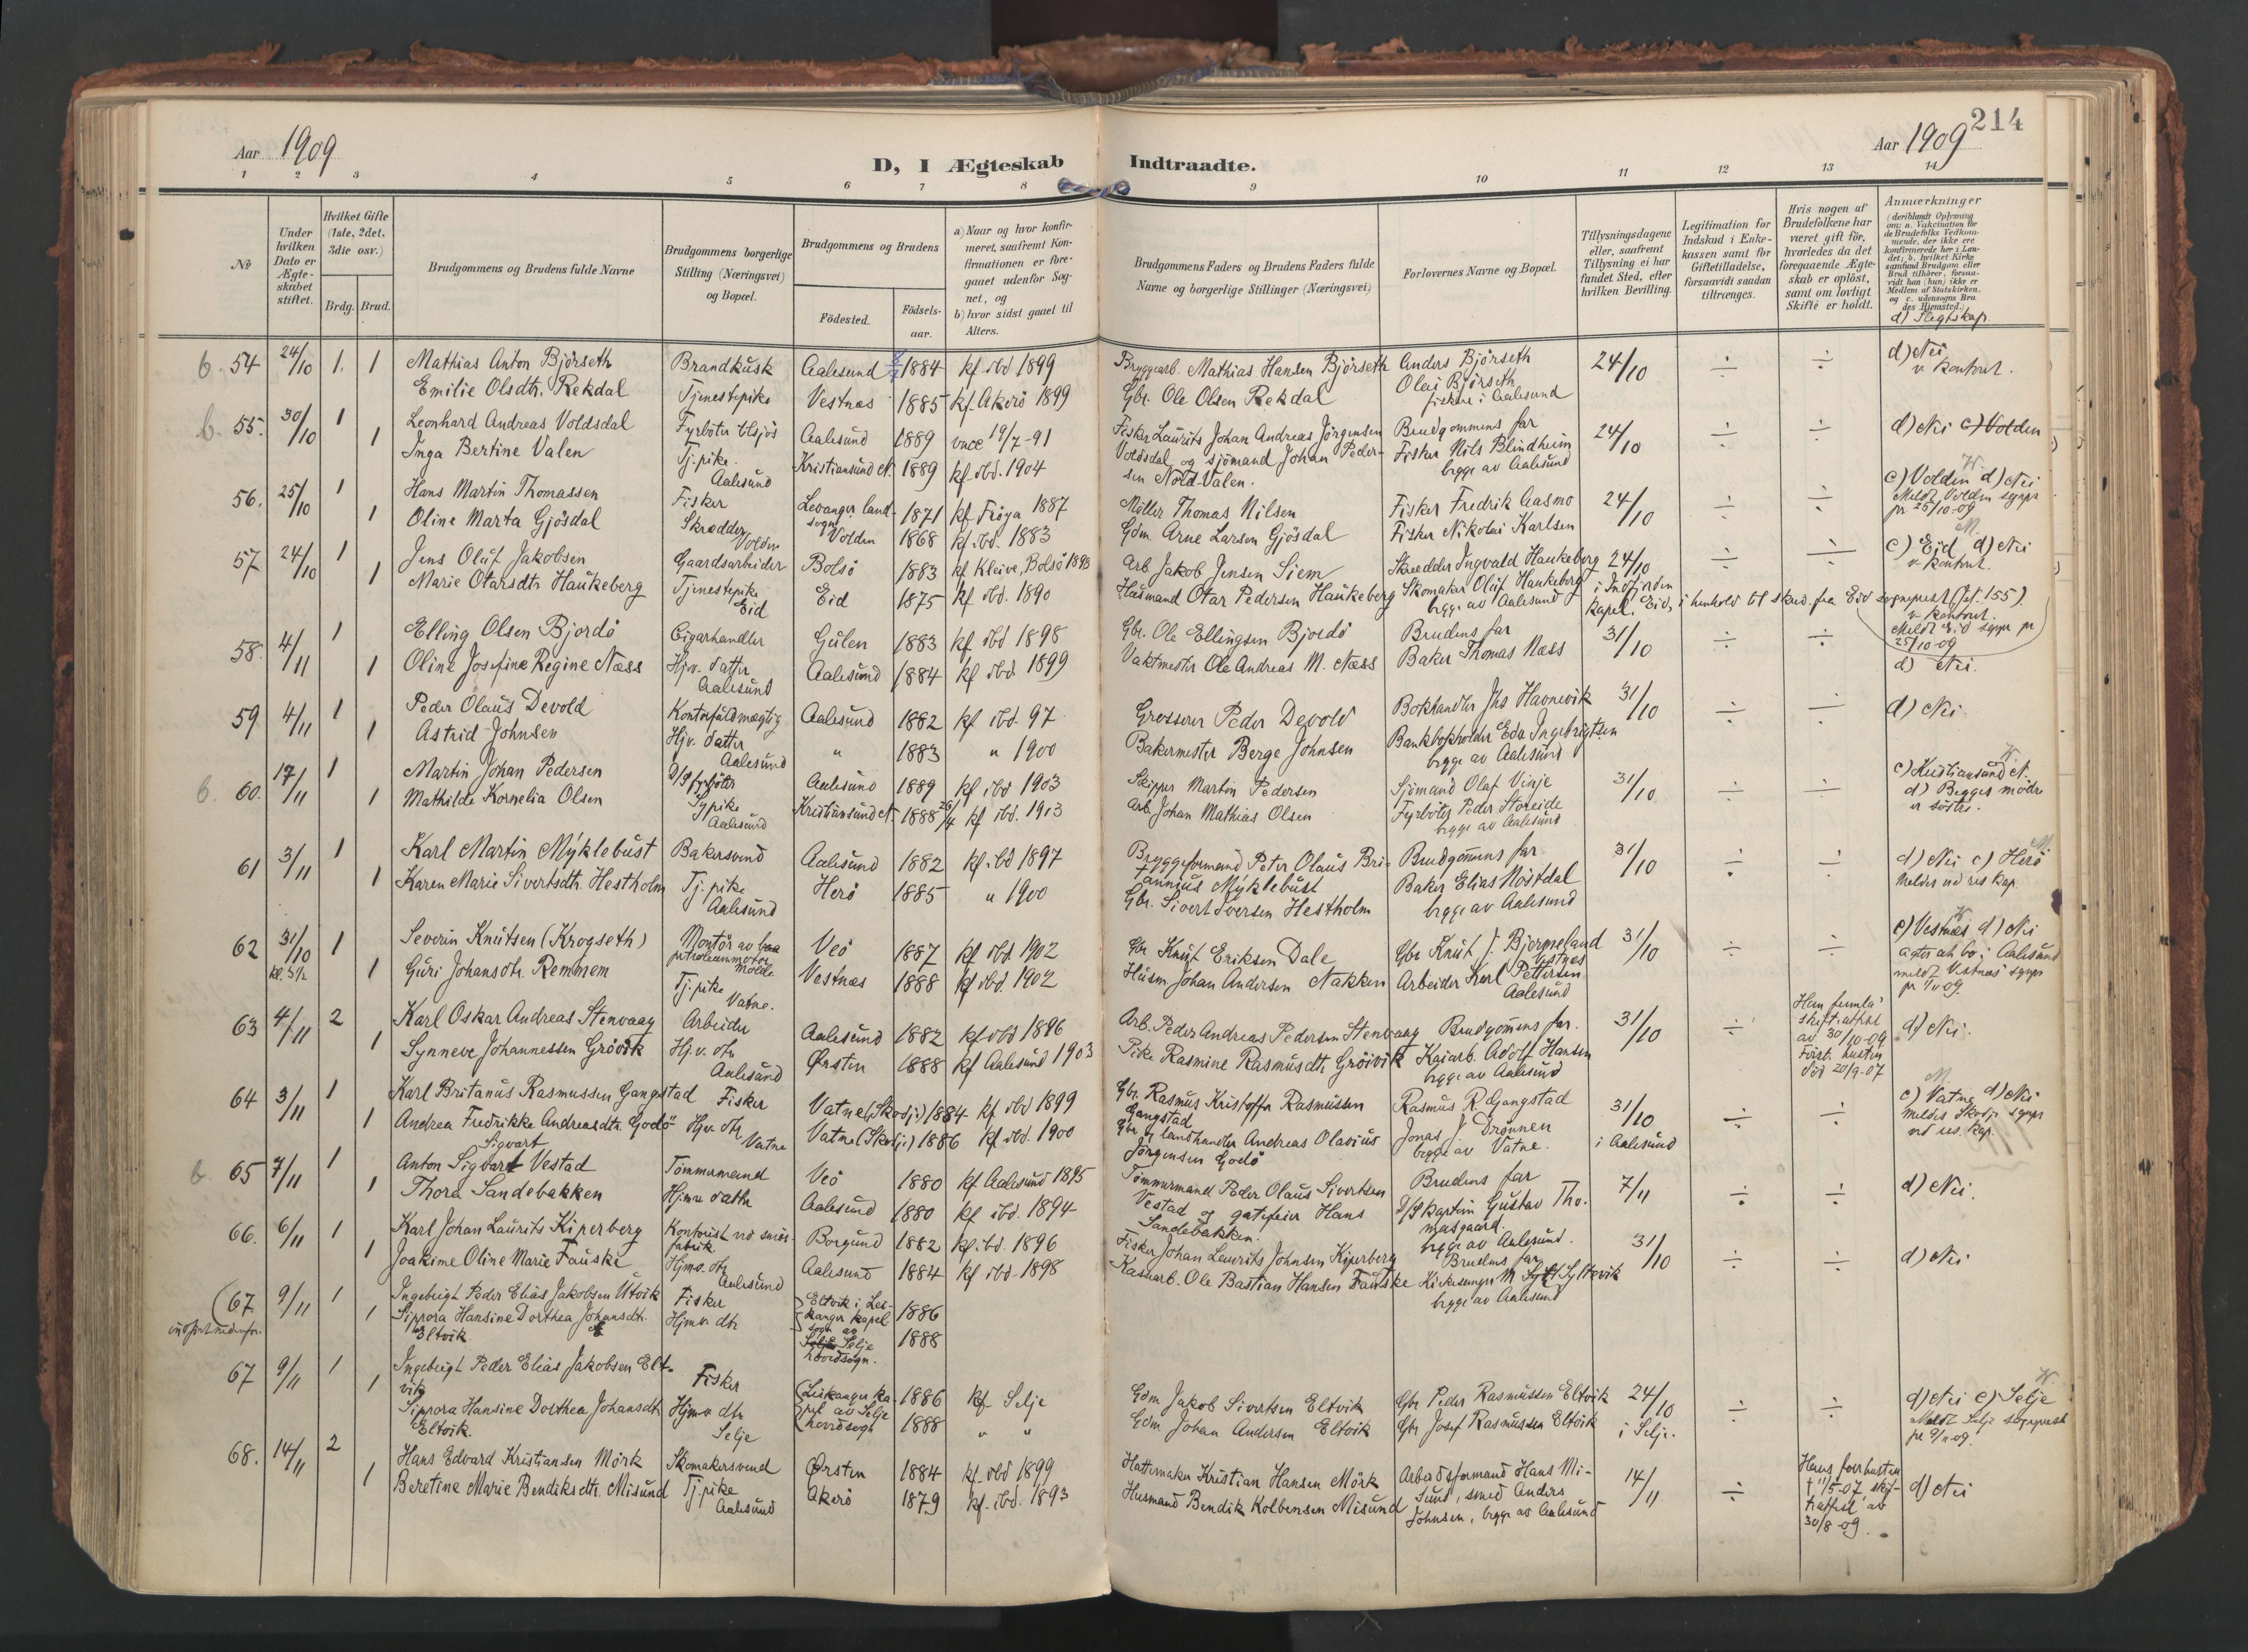 214
Aar 1909
Aar 1909
D, I Ægteskab Indtraadte.
1 2 3 4 5 6 7 8 9 10 11 12 13 14
No
Under hvilken Dato er Ægte-skabet stiftet.
Hvilket Gifte (1ste, 2det, 3die osv.)
Brdg. Brud.
Brudgommens og Brudens fulde Navne
Brudgommens borgerlige Stilling (Næringsvei) og Bopæl.
Brudgommens og Brudens
Fødested.
Fødsels-aar.
a) Naar og hvor konfir-meret, saafremt Kon-firmationen er fore-gaaet udenfor Sog-net, og
b) hvor sidst gaaet til Alters.
Brudgommens Faders og Brudens Faders fulde Navne og borgerlige Stillinger (Næringsvei)
Forlovernes Navne og Bopæl.
Tillysningsdagene eller, saafremt Tillysning ei har fundet Sted, efter hvilken Bevilling.
Legitimation for Indskud i Enke-kassen samt for Giftetilladelse, forsaavidt saadan tiltrænges.
Hvis nogen af Brudefolkene har været gift før, hvorledes da det foregaaende Ægte-skab er opløst, samt om lovligt Skifte er holdt.
Anmærkninger
d) Slegtskap.
b. 54 24/10 1. 1 Mathias Anton Bjørseth Brandkusk Aalesund 1884 kf. ibd 1899 Bryggearb. Mathias Hansen Bjørseth Anders Bjørseth 24/10 ÷ ÷ d) Nei
Emilie Olsdtr. Rekdal Tjenestepike Vestnæs 1885 kf. Akerø 1899 Gbr. Ole Olsen Rekdal Olai Bjørseth v. kontout.
fiskere i Aalesund
b. 55. 30/10 1 1 Leonhard Andreas Voldsdal Fyrbøter tilsjøs Aalesund 1889 vacc 19/7-91 Fisker Laurits Johan Andreas Jørgensen Brudgommens far 24/10 ÷ ÷ d) Nei c) Volden
Inga Bertine Valen Tj. pike. Kristiansund N. 1889 kf. ibd. 1904 Voldsdal og sjømand Johan Peder- Fisker Nils Blindheim
Aalesund sen Nord-Valen. begge av Aalesund
56. 25/10 1 1 Hans Martin Thomassen Fisker Levanger land-sogn 1871 kf. Frøya 1887 Møller Thomas Nilsen Fisker Fredrik Aasmo 24/10 ÷ ÷ c) Volden d) Nei
Oline Marta Gjøsdal Skrædder Volden 1868 kf. ibd. 1883 Gdm. Arne Larsen Gjøsdal Fisker Nikolai Karlsen Meldt Volden sgpr
Volden pr 25/10-09
57 24/10 1 1 Jens Oluf Jakobsen Gaardsarbeider Bolsø 1883 kf Kleive, Bolsø Arb Jakob Jensen Siem Skrædder Ingvald Haukeberg 24/10 ÷ ÷ c) Eid d) Nei
Marie Otarsdtr. Haukeberg Tjenestepike Eid 1875 kf ibd. 1890 Husmand Otar Pedersen Haukeberg Skomaker Oluf Haukeberg i Indfjorden
Eid begge av Aalesund kapel. Eid, i henhold til skriv. fra Eid sogneprest (jf. 155).
Meldt Eid sgpr pr 25/10-09
58. 4/11 1 1 Elling Olsen Bjordø Cigarhandler Gulen 1883 kf ibd 1898 Gbr. Ole Ellingsen Bjordø Brudens far 31/10 ÷ ÷ d) Nei.
Oline Josefine Regine Næss Hjv. datter Aalesund 1884 kf ibd 1899 Vaktmester Ole Andreas M. Næss Baker Thomas Næss
Aalesund
59 4/11 1 1 Peder Olaus Devold Kontorfuldmægtig Aalesund 1882 kf ibd. 97 Grosserer Peder Devold Bokhandler Jhs Havnevik 31/10 ÷ ÷ d) Nei.
Astrid Johnsen Hjv. datter " 1883 " 1900 Bakermester Berge Johnsen Bankbokholder Edv Ingebrigtsen
Aalesund begge av Aalesund
b. 60. 17/11 1 1 Martin Johan Pedersen D/S fyrbøter Aalesund 1889 kf ibd 1903 Skipper Martin Pedersen Sjømand Olaf Vinje 31/10 ÷ ÷ c) Kristiansund N.
Mathilde Kornelia Olsen Sypike Kristiansund N. 1888 kf ibd. 1903 Arb. Johan Mathias Olsen Fyrbøter Peder Storeide d) Begges mødre
Aalesund begge av Aalesund er søstre.
61 3/11 1 1 Karl Martin Myklebust Bakersvend Aalesund 1882 kf. ibd 1897 Bryggeformand Peter Olaus Bri- Brudgommens far 31/10 ÷ ÷ d) Nei c) Herø
Karen Marie Sivertsdtr. Hestholm Tj. pike Herø 1885 " 1900 tannius Myklebust Baker Elias Nøstdal Meldes ved res kap.
Aalesund Gbr. Sivert Iversen Hestholm begge av Aalesund
62 31/10 1 1 Severin Knutsen (Krogseth) Montør av petroleumsmotor Veø 1887 kf ibd. 1902 Gbr Knut Eriksen Dale Gbr Knut J. Bjermeland 31/10 ÷ ÷ c) Vestnæs d) Nei
Guri Johansdtr. Remmem Molde Vestnæs 1888 kf ibd. 1902 Husm Johan Andersen Nakken Arbeider Karl Pettersen agter at bo i Aalesund
Tj. pike Vatne. Aalesund meldt Vestnæs sgpr
63 4/11 2 1 Karl Oskar Andreas Stenvaag Arbeider Aalesund 1882 kf ibd 1896 Arb. Peder Andreas Pedersen Stenvaag Brudgommens far. 31/10 ÷ d) Nei.
Synneve Johannessen Grövik Hj. v. dtr Ørsten 1888 kf Aalesund 1903 Pike Rasmine Rasmusdtr Gröivik Kaiarb. Adolf Hansen
Aalesund begge av Aalesund
av 30/10-09 Første hustru død 20/9-07
64 3/11 1 1 Karl Britanus Rasmussen Gangstad Fisker Vatne (Skodje) 1884 kf ibd 1899 Gbr. Rasmus Kristoffer Rasmussen Gangstad Rasmus R. Gangstad 31/10 ÷ ÷ c) Vatne d) Nei
Andrea Fredrikke Andreasdtr. Godø Hjv. dtr Vatne (Skodje) 1886 kf. ibd. 1900 Gbr og landhandler Andreas Olavius Jørgensen Godø Jonas J. Drønnen i Aalesund Meldes Skodje sgpr
Vatne begge av Vatne. ved res. kap.
b. 65 7/11 1 1 Anton Sigvart Vestad Tømmermand Veø 1880 kf Aalesund 1895 Tømmermand Peder Olaus Sivertsen Brudens far 7/11 ÷ ÷ d) Nei.
Thora Sandebakken Hjmv datter Aalesund 1880 kf ibd. 1894 Vestad og gatefeier Hans Sandebakken. D/S kaptein Gustav Tho-masgaard.
begge av Aalesund.
66. 6/11 1 1 Karl Johan Laurits Kiperberg Kontorist ved smør-fabrik Borgund 1882 kf. ibd. 1896 Fisker Johan Laurits Johnsen Kiperberg Brudens far 31/10 ÷ ÷ d) Nei
Joakime Oline Marie Fauske Hjmv. dtr Aalesund 1884 kf ibd. 1898 Ole Bastian Hansen Fauske Kirkesanger M Syltevik
Aalesund begge av Aalesund
(67 9/11 1 1 Ingebrigt Peder Elias Jakobsen Utvik Fisker Eltvik i Lei-kanger kapel 1886
Siprora Hansine Dorthea Johansdtr. Hjmv. dtr sogn av Selje hovedsogn. 1888
Eltvik
67 9/11 1 1 Ingebrigt Peder Elias Jakobsen Elt-vik Fisker Leikanger ka-pel av Selje 1886 kf Selje Gdm Jakob Sivertsen Eltvik Gbr Peder Rasmussen Eltvik 24/10 ÷ ÷ d) Nei c) Selje
Siprora Hansine Dorthea Johansdtr Hjmv dtr hovedsogn 1888 " " Gdm Johan Andersen Eltvik Gbr Josef Rasmussen Eltvik i Selje. Meldt Selje sogneprest
Eltvik. Selje pr 9/11-09.
68. 14/11 2 1 Hans Edvard Kristiansen Mörk Skomakersvend Ørsten 1884 kf. ibd 1899 Hattemaker Kristian Hansen Mörk Arbeidsformand Hans Mi- 14/11 ÷ Hans forr hustru d) Nei
Beretine Marie Bendiksdtr. Misund Tj. pike Akerø 1879 kf. ibd. 1893 Husmand Bendik Kolbensen Misund sund, smed Anders † 11/5-07 skif-
Aalesund Johnsen, begge av Aalesund teattest av
30/8-09.